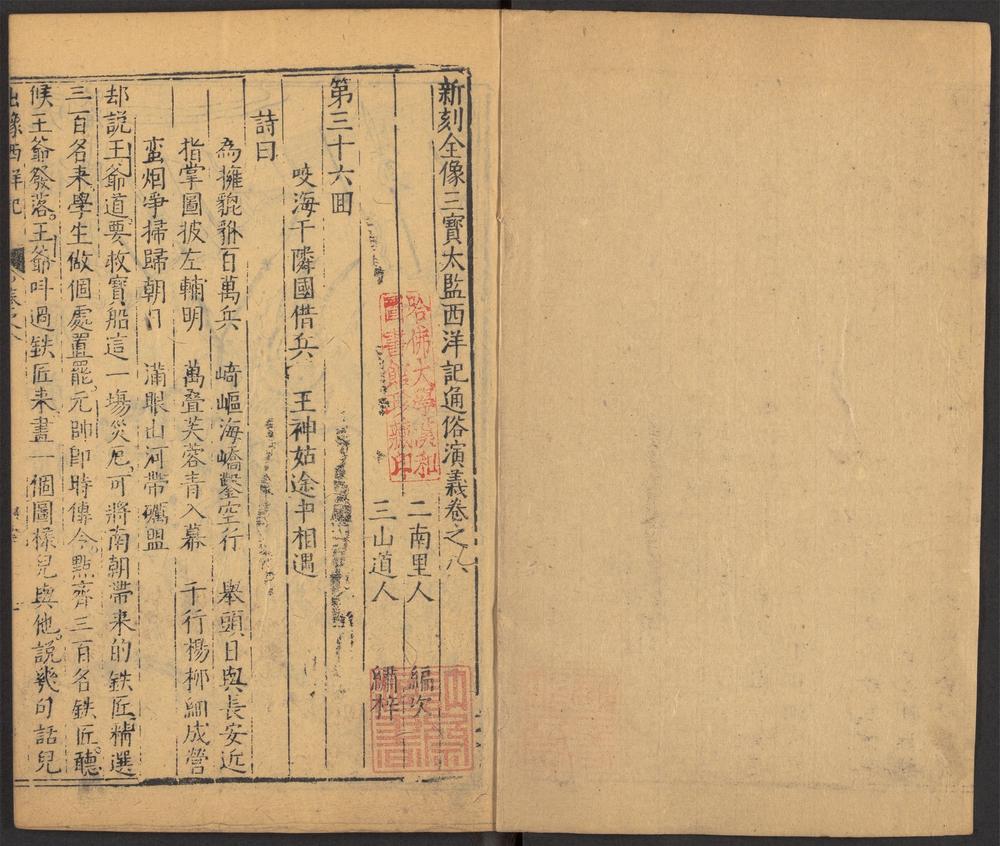 新刻全像三寶太監西洋記通俗演義卷之八
二南里人 編次
三山道人 繡梓
哈佛大學漢和
圖書館珍藏印
第三十六回
咬海干隣國借兵 王神姑途中相遇
詩曰
為擁貔貅百萬兵 崎嶇海嶠鑿空行 舉頭日與長安近
指掌圖披左輔明 萬疊芙蓉青入幕 千行楊柳細成營
蛮烟争掃歸朝日 滿眼山河帶礪盟
却說王爺道要救寶船這一塲災厄可將南朝帶来的鉄匠精選
三百名来學生做個處置罷元帥即時傳令點齊三百名鉄匠聽
候王爺發落王爺呌過鉄匠来畫一個圖樣兒與他說幾句話兒
出像西洋記 卷之八